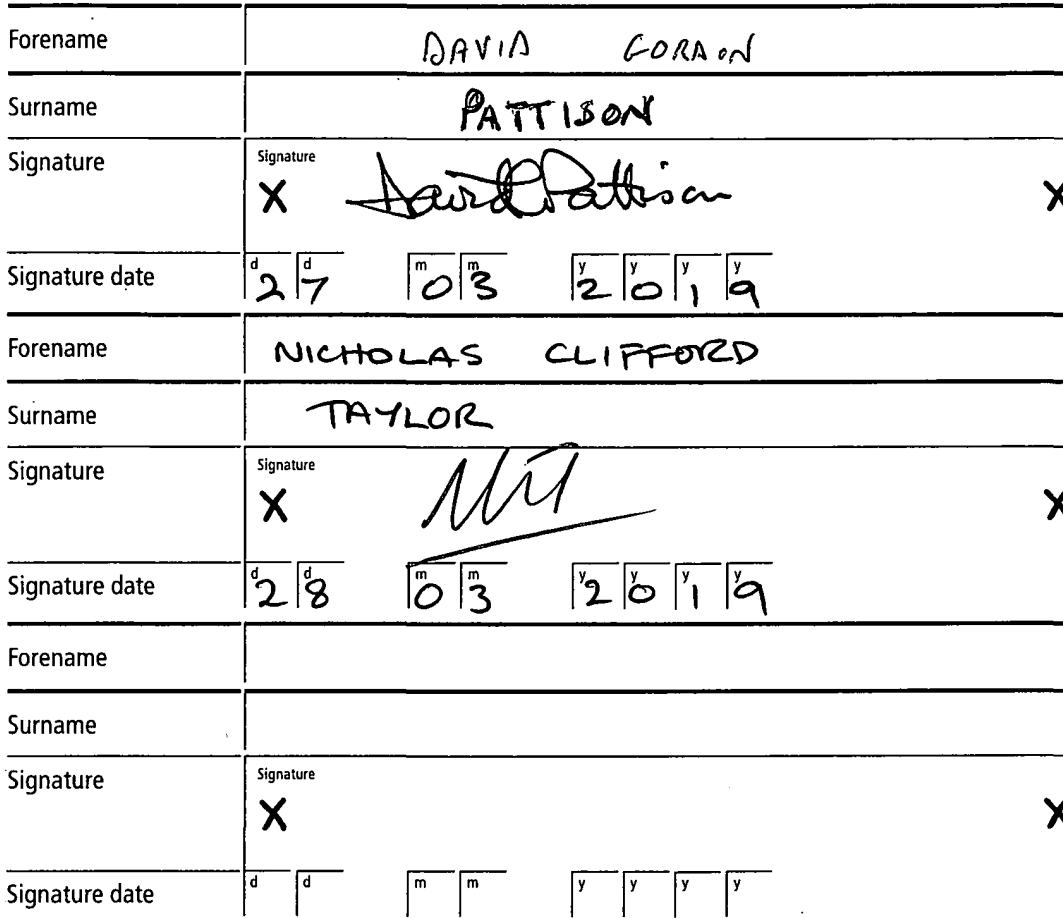 Forename DAVID GORDON
Surname PATTISON
Signature Signature X David Pattison X
Signature date d 2 d 7 m 0 m 3 y 2 y 0 y 1 y 9
Forename NICHOLAS CLIFFORD
Surname TAYLOR
Signature Signature X X
Signature date d 2 d 8 m 0 m 3 y 2 y 0 y 1 y 9
Forename
Surname
Signature Signature X X
Signature date d d m m y y y y